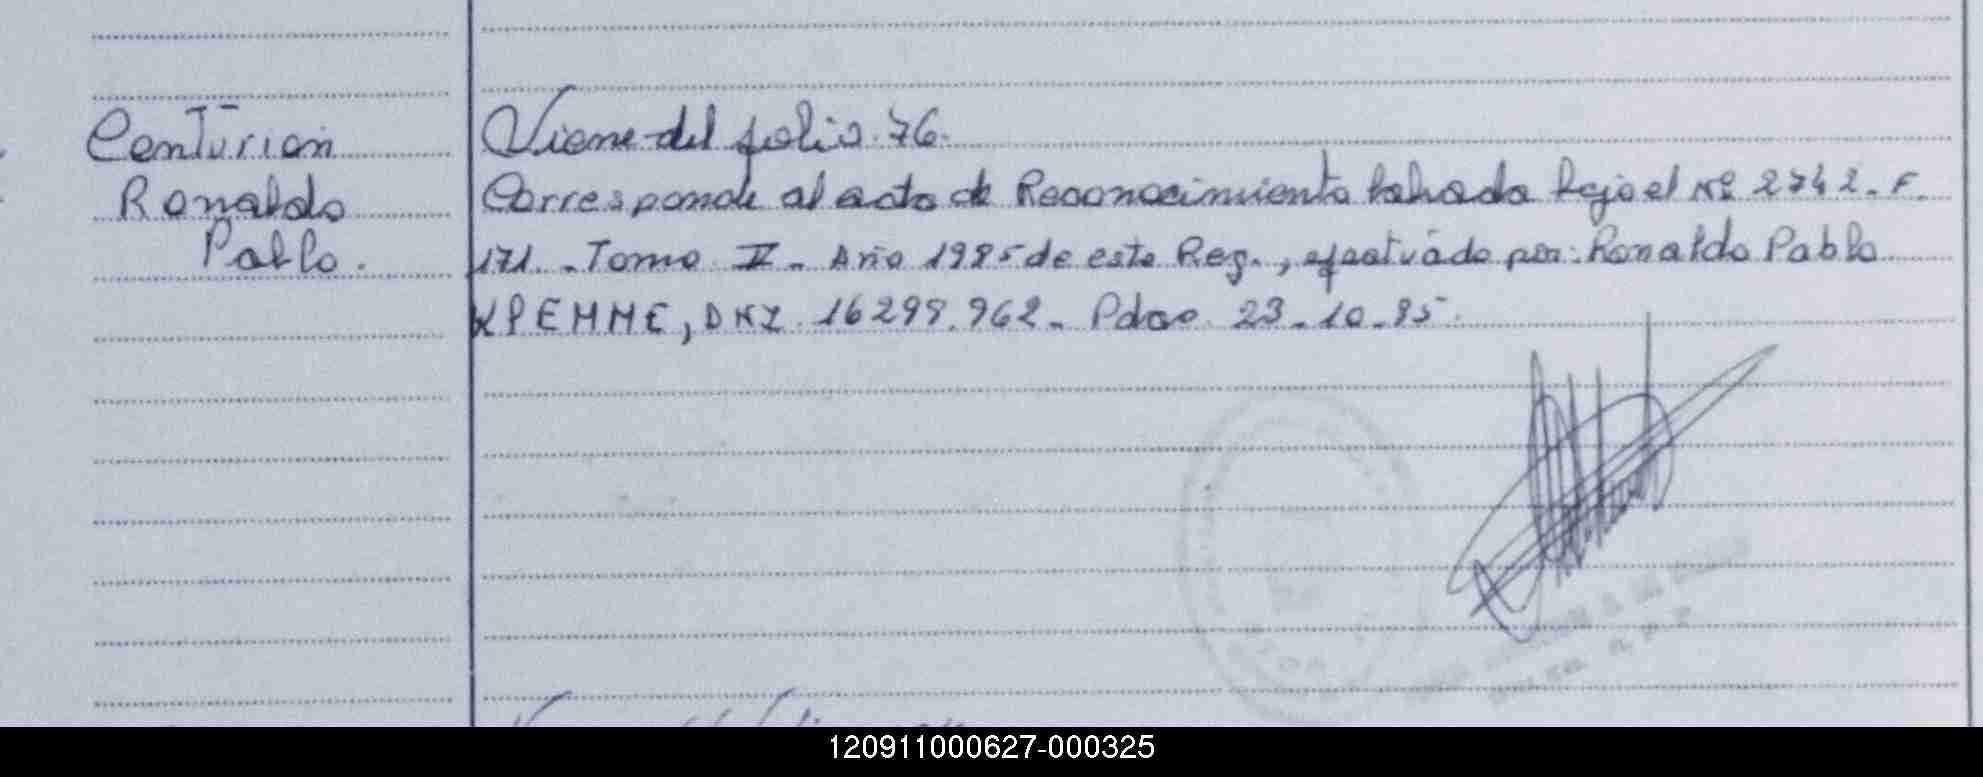 Centurión
Ronaldo
Pablo.
Viene del folio 76.
Corresponde al acta de Reconocimiento labrada bajo el Nº 2742. F.
171. Tomo V. Año 1985 de este Reg., efectuado por: Ronaldo Pablo
KREMME, DNI 16299.962. Pdas. 23-10-85.
120911000627-000325